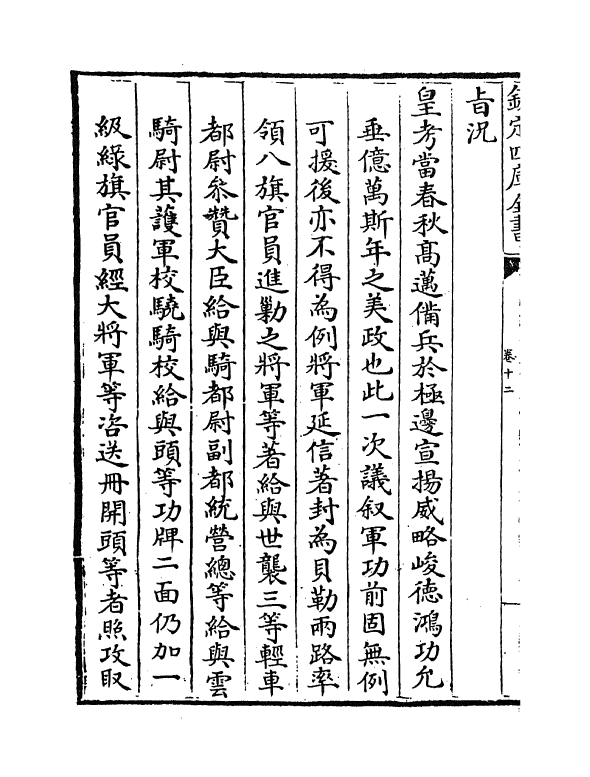 欽定四庫全書
卷十二
旨況
皇考當春秋髙邁備兵於極邊宣揚威略峻德鴻功允
垂億萬斯年之美政也此一次議叙軍功前固無例
可援後亦不得為例將軍延信著封為貝勒兩路率
領八旗官員進勦之將軍等著給與世襲三等輕車
都尉叅贊大臣給與騎都尉副都統營總等給與雲
騎尉其護軍校驍騎校給與頭等功牌二面仍加一
級綠旗官員經大將軍等咨送冊開頭等者照攻取